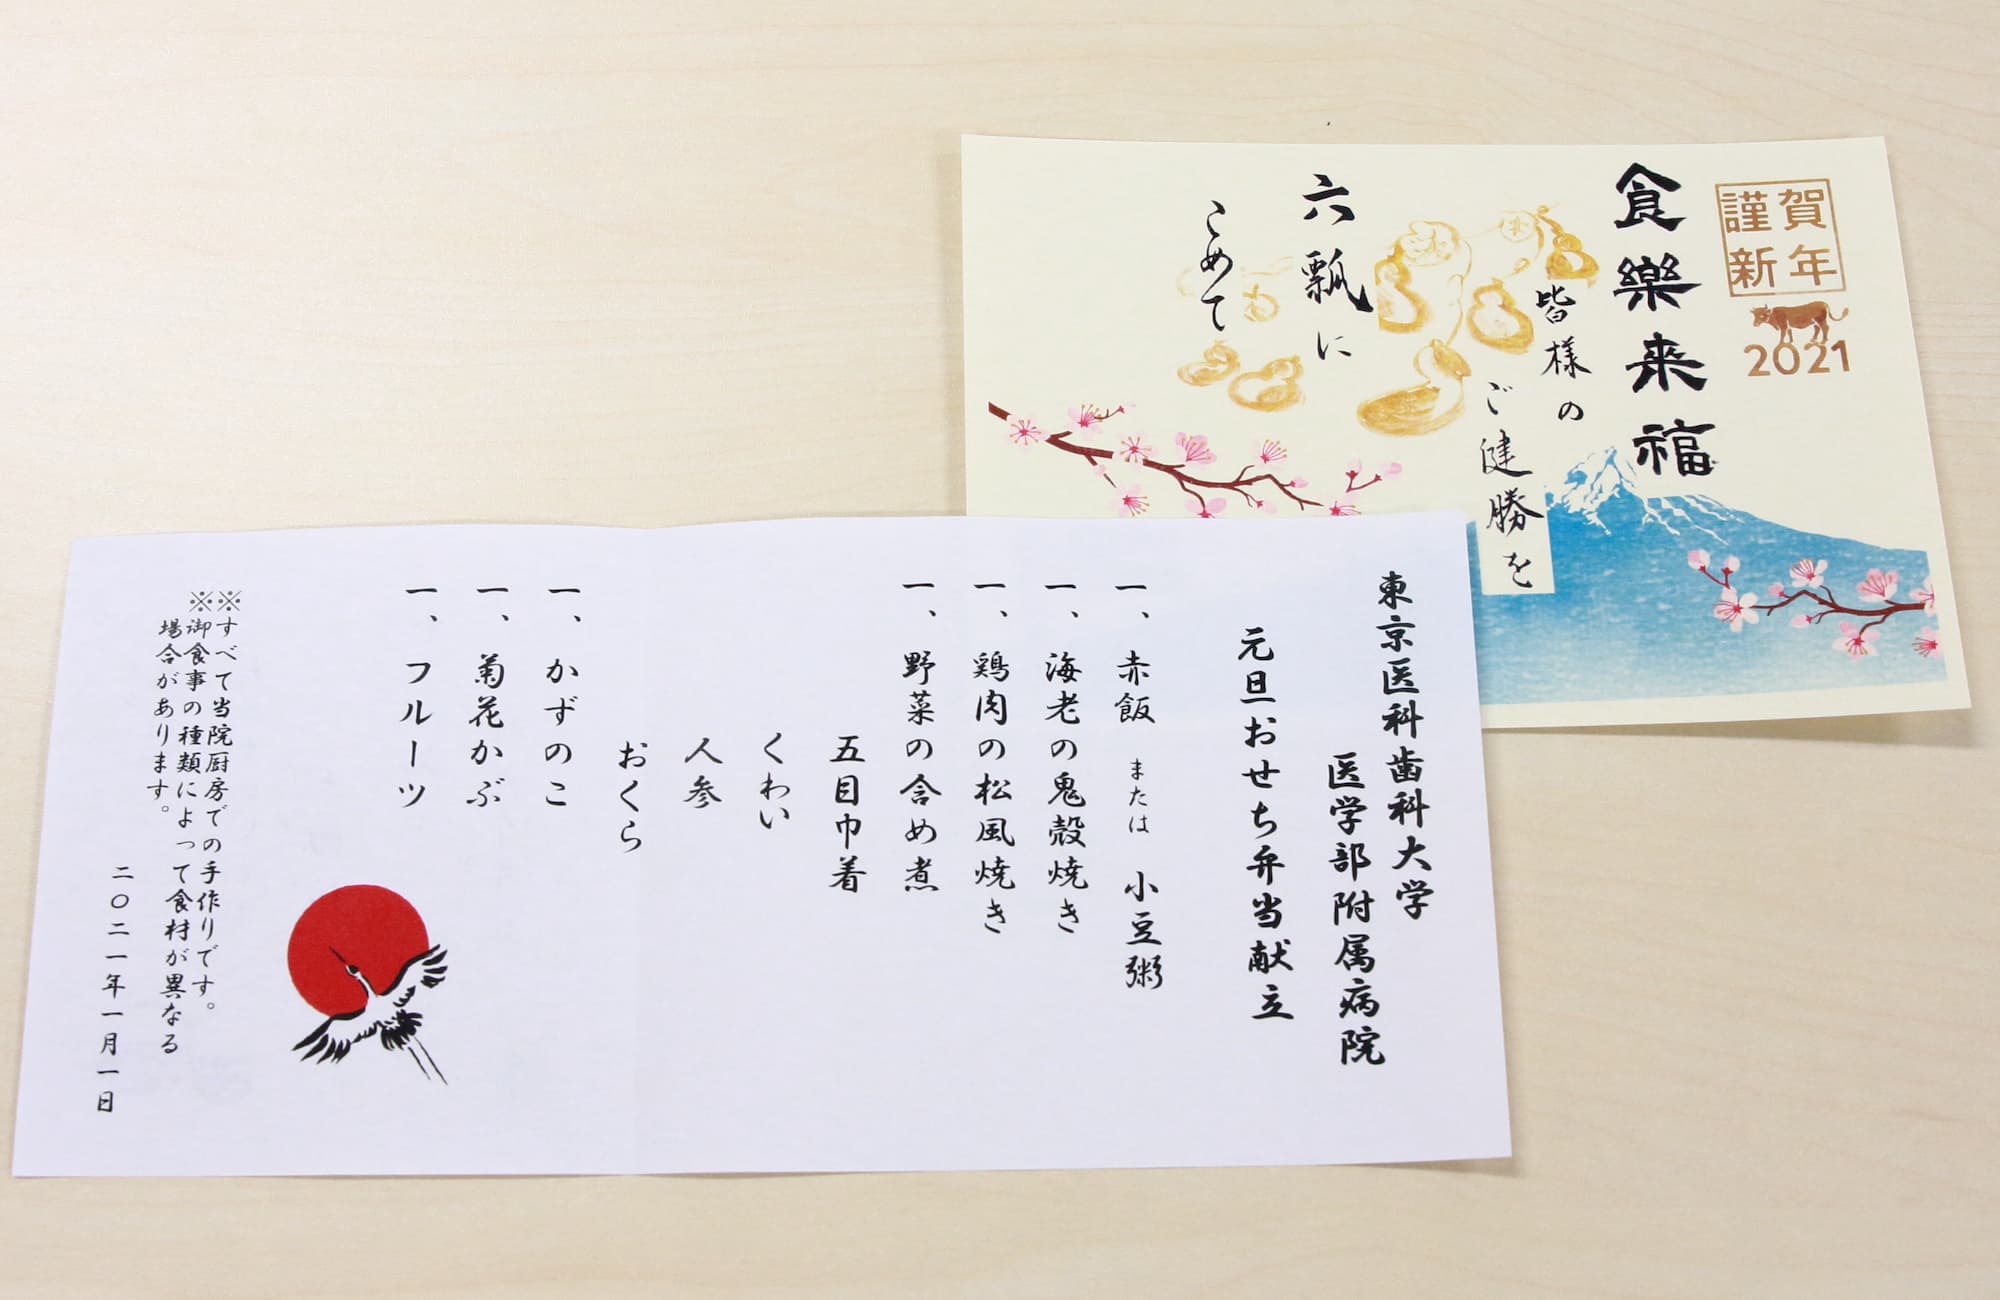 謹賀
新年
2021
食樂来福
皆様の
ご健勝を
六瓢に
こめて
東京医科歯科大学
医学部附属病院
元旦おせち弁当献立
一、赤飯 または 小豆粥
一、海老の鬼殻焼き
一、鶏肉の松風焼き
一、野菜の含め煮
五目巾着
くわい
人参
おくら
一、かずのこ
一、菊花かぶ
一、フルーツ
※すべて当院厨房での手作りです。
※御食事の種類によって食材が異なる
場合があります。
二〇二一年一月一日